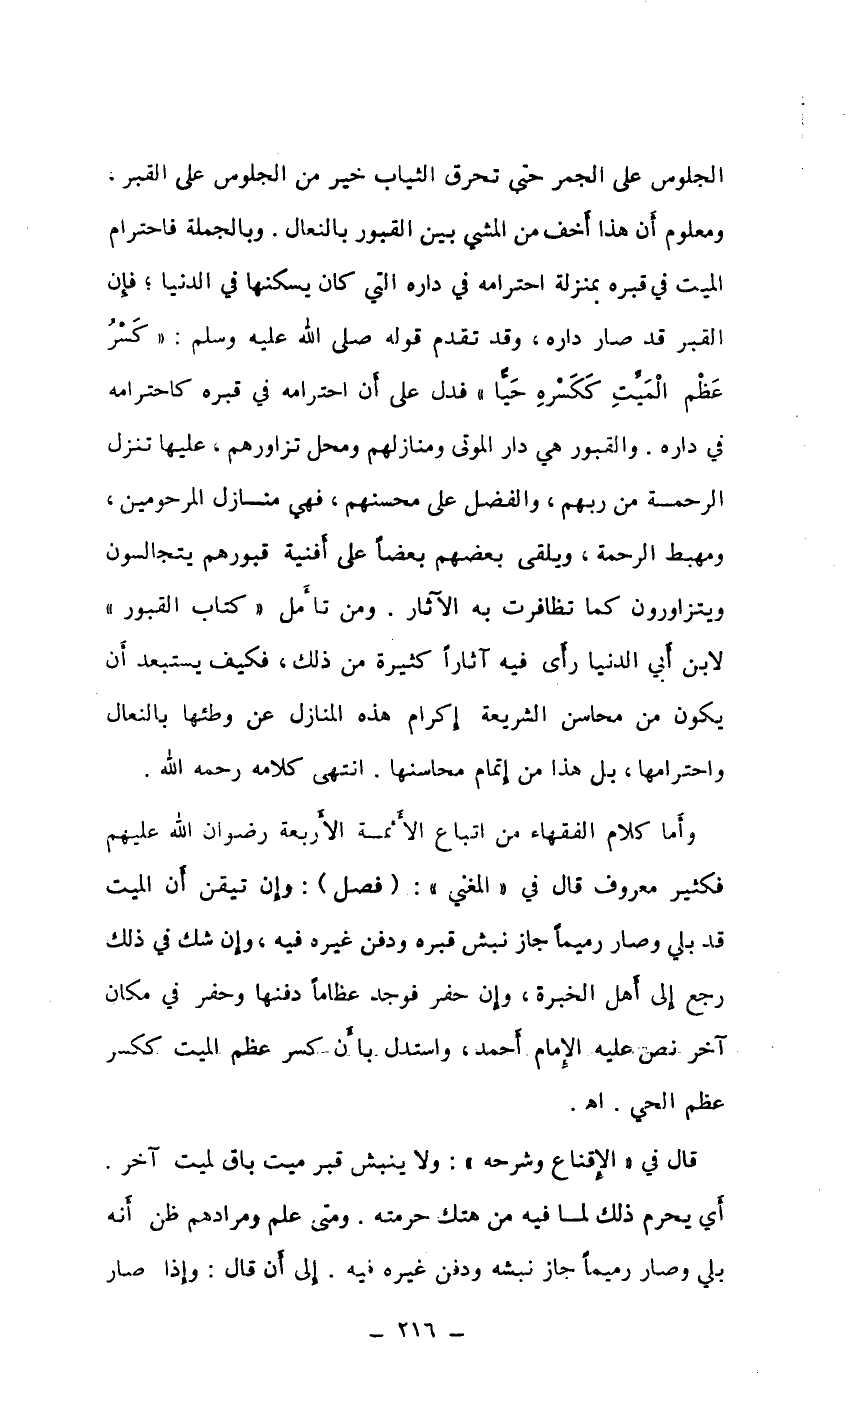 الجلوس على الجمر حتى تحرق الثياب خير من الجلوس على القبر .
ومعلوم أن هذا أخف من المشي بين القبور بالنعال . وبالجملة فاحترام
الميت في قبره بمنزلة احترامه في داره التي كان يسكنها في الدنيا ؛ فإن
القبر قد صار داره ، وقد تقدم قوله صلى الله عليه وسلم : « كَسْرُ
عَظْمِ الْمَيِّتِ كَكَسْرِهِ حَيًّا » فدل على أن احترامه في قبره كاحترامه
في داره . والقبور هي دار الموتى ومنازلهم ومحل تزاورهم ، عليها تنزل
الرحمــة من ربهم ، والفضل على محسنهم ، فهي منــازل المرحومين ،
ومهبط الرحمة ، ويلقى بعضهم بعضاً على أفنية قبورهم يتجالسون
ويتزاورون كما تظافرت به الآثار . ومن تأمل « كتاب القبور »
لابن أبي الدنيا رأى فيه آثاراً كثيرة من ذلك ، فكيف يستبعد أن
يكون من محاسن الشريعة إكرام هذه المنازل عن وطئها بالنعال
واحترامها ، بل هذا من إتمام محاسنها . انتهى كلامه رحمه الله .
وأما كلام الفقهاء من اتباع الأئمــة الأربعة رضوان الله عليهم
فكثير معروف قال في « المغني » : ( فصل ) : وإن تيقن أن الميت
قد بلي وصار رميماً جاز نبش قبره ودفن غيره فيه ، وإن شك في ذلك
رجع إلى أهل الخبرة ، وإن حفر فوجد عظاماً دفنها وحفر في مكان
آخر نص عليه الإمام أحمد ، واستدل بأن كسر عظم الميت ككسر
عظم الحي . اه .
قال في « الإقناع وشرحه » : ولا ينبش قبر ميت باق لميت آخر .
أي يحرم ذلك لمــا فيه من هتك حرمته . ومتى علم ومرادهم ظن أنه
بلي وصار رميماً جاز نبشه ودفن غيره فيه . إلى أن قال : وإذا صار
– ٢١٦ –